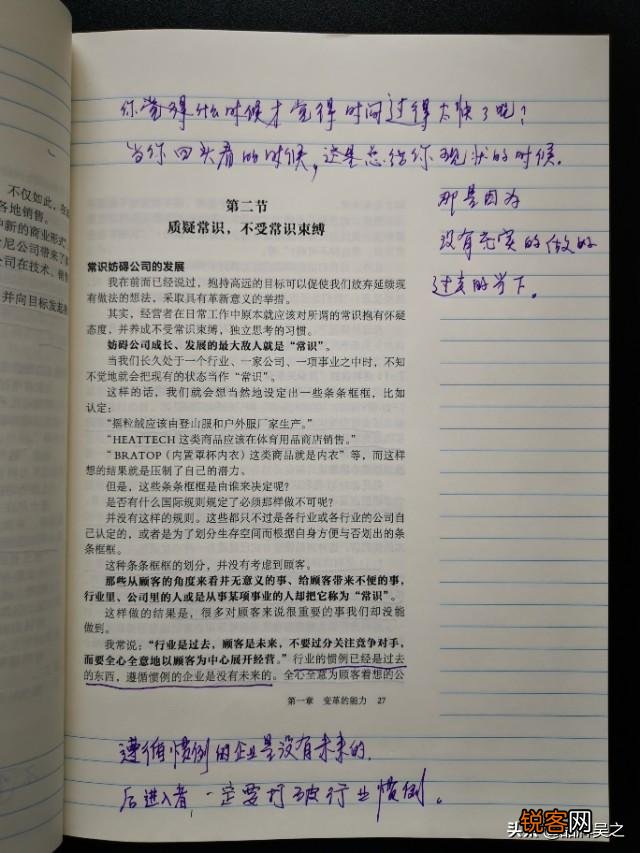 你觉得什么时候才觉得时间过得太快了呢?
当你回头看的时候,这是总结你现状的时候.
那是因为
没有充实的做的
过去的当下。
不仅如此,
各地销售。
中新的商业形式
尼公司带来了
公司在技术、销售
并向目标发起
第二节
质疑常识,不受常识束缚
常识妨碍公司的发展
我在前面已经说过,抱持高远的目标可以促使我们放弃延续现
有做法的想法,采取具有革新意义的举措。
其实,经营者在日常工作中原本就应该对所谓的常识抱有怀疑
态度,并养成不受常识束缚,独立思考的习惯。
妨碍公司成长、发展的最大敌人就是“常识”。
当我们长久处于一个行业、一家公司、一项事业之中时,不知
不觉地就会把现有的状态当作“常识”。
这样的话,我们就会想当然地设定出一些条条框框,比如
认定:
“摇粒绒应该由登山服和户外服厂家生产。”
“HEATTECH 这类商品应该在体育用品商店销售。”
“BRATOP(内置罩杯内衣)这类商品就是内衣”等,而这样
想的结果就是压制了自己的潜力。
但是,这些条条框框是由谁来决定呢?
是否有什么国际规则规定了必须那样做不可呢?
并没有这样的规则。这些都只不过是各行业或各行业的公司自
己认定的,或者是为了划分生存空间而根据自身方便与否划出的条
条框框。
这种条条框框的划分,并没有考虑到顾客。
那些从顾客的角度来看并无意义的事、给顾客带来不便的事,
行业里、公司里的人或是从事某项事业的人却把它称为“常识”。
这样做的结果是,很多对顾客来说很重要的事我们却没能
做到。
我常说:“行业是过去,顾客是未来,不要过分关注竞争对手,
而要全心全意地以顾客为中心展开经营。”行业的惯例已经是过去
的东西,遵循惯例的企业是没有未来的。全心全意为顾客着想的公
第一章 变革的能力 27
遵循惯例的企业是没有未来的.
后进入者,一定要打破行业惯例。
头条@品牌吴之
锐客网